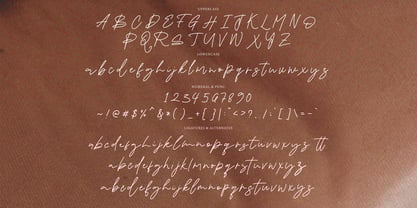 UPPERCASE
ABCDEFGHIJKLMNO
PQRSTUVWXYZ
LOWERCASE
abcdefghijklmnopqrstuvwxyz
NUMERAL & PUNC
1234567890
~!@#$%^&*()_+{}|:"<>?,./;'[]\=-`
LIGATURES & ALTERNATIVE
abcdefghijklmnopqrstuvwxyz tt
abcdefghijklmnopqrstuvwxyz
abcdefghijklmnopqrstuvwxyz